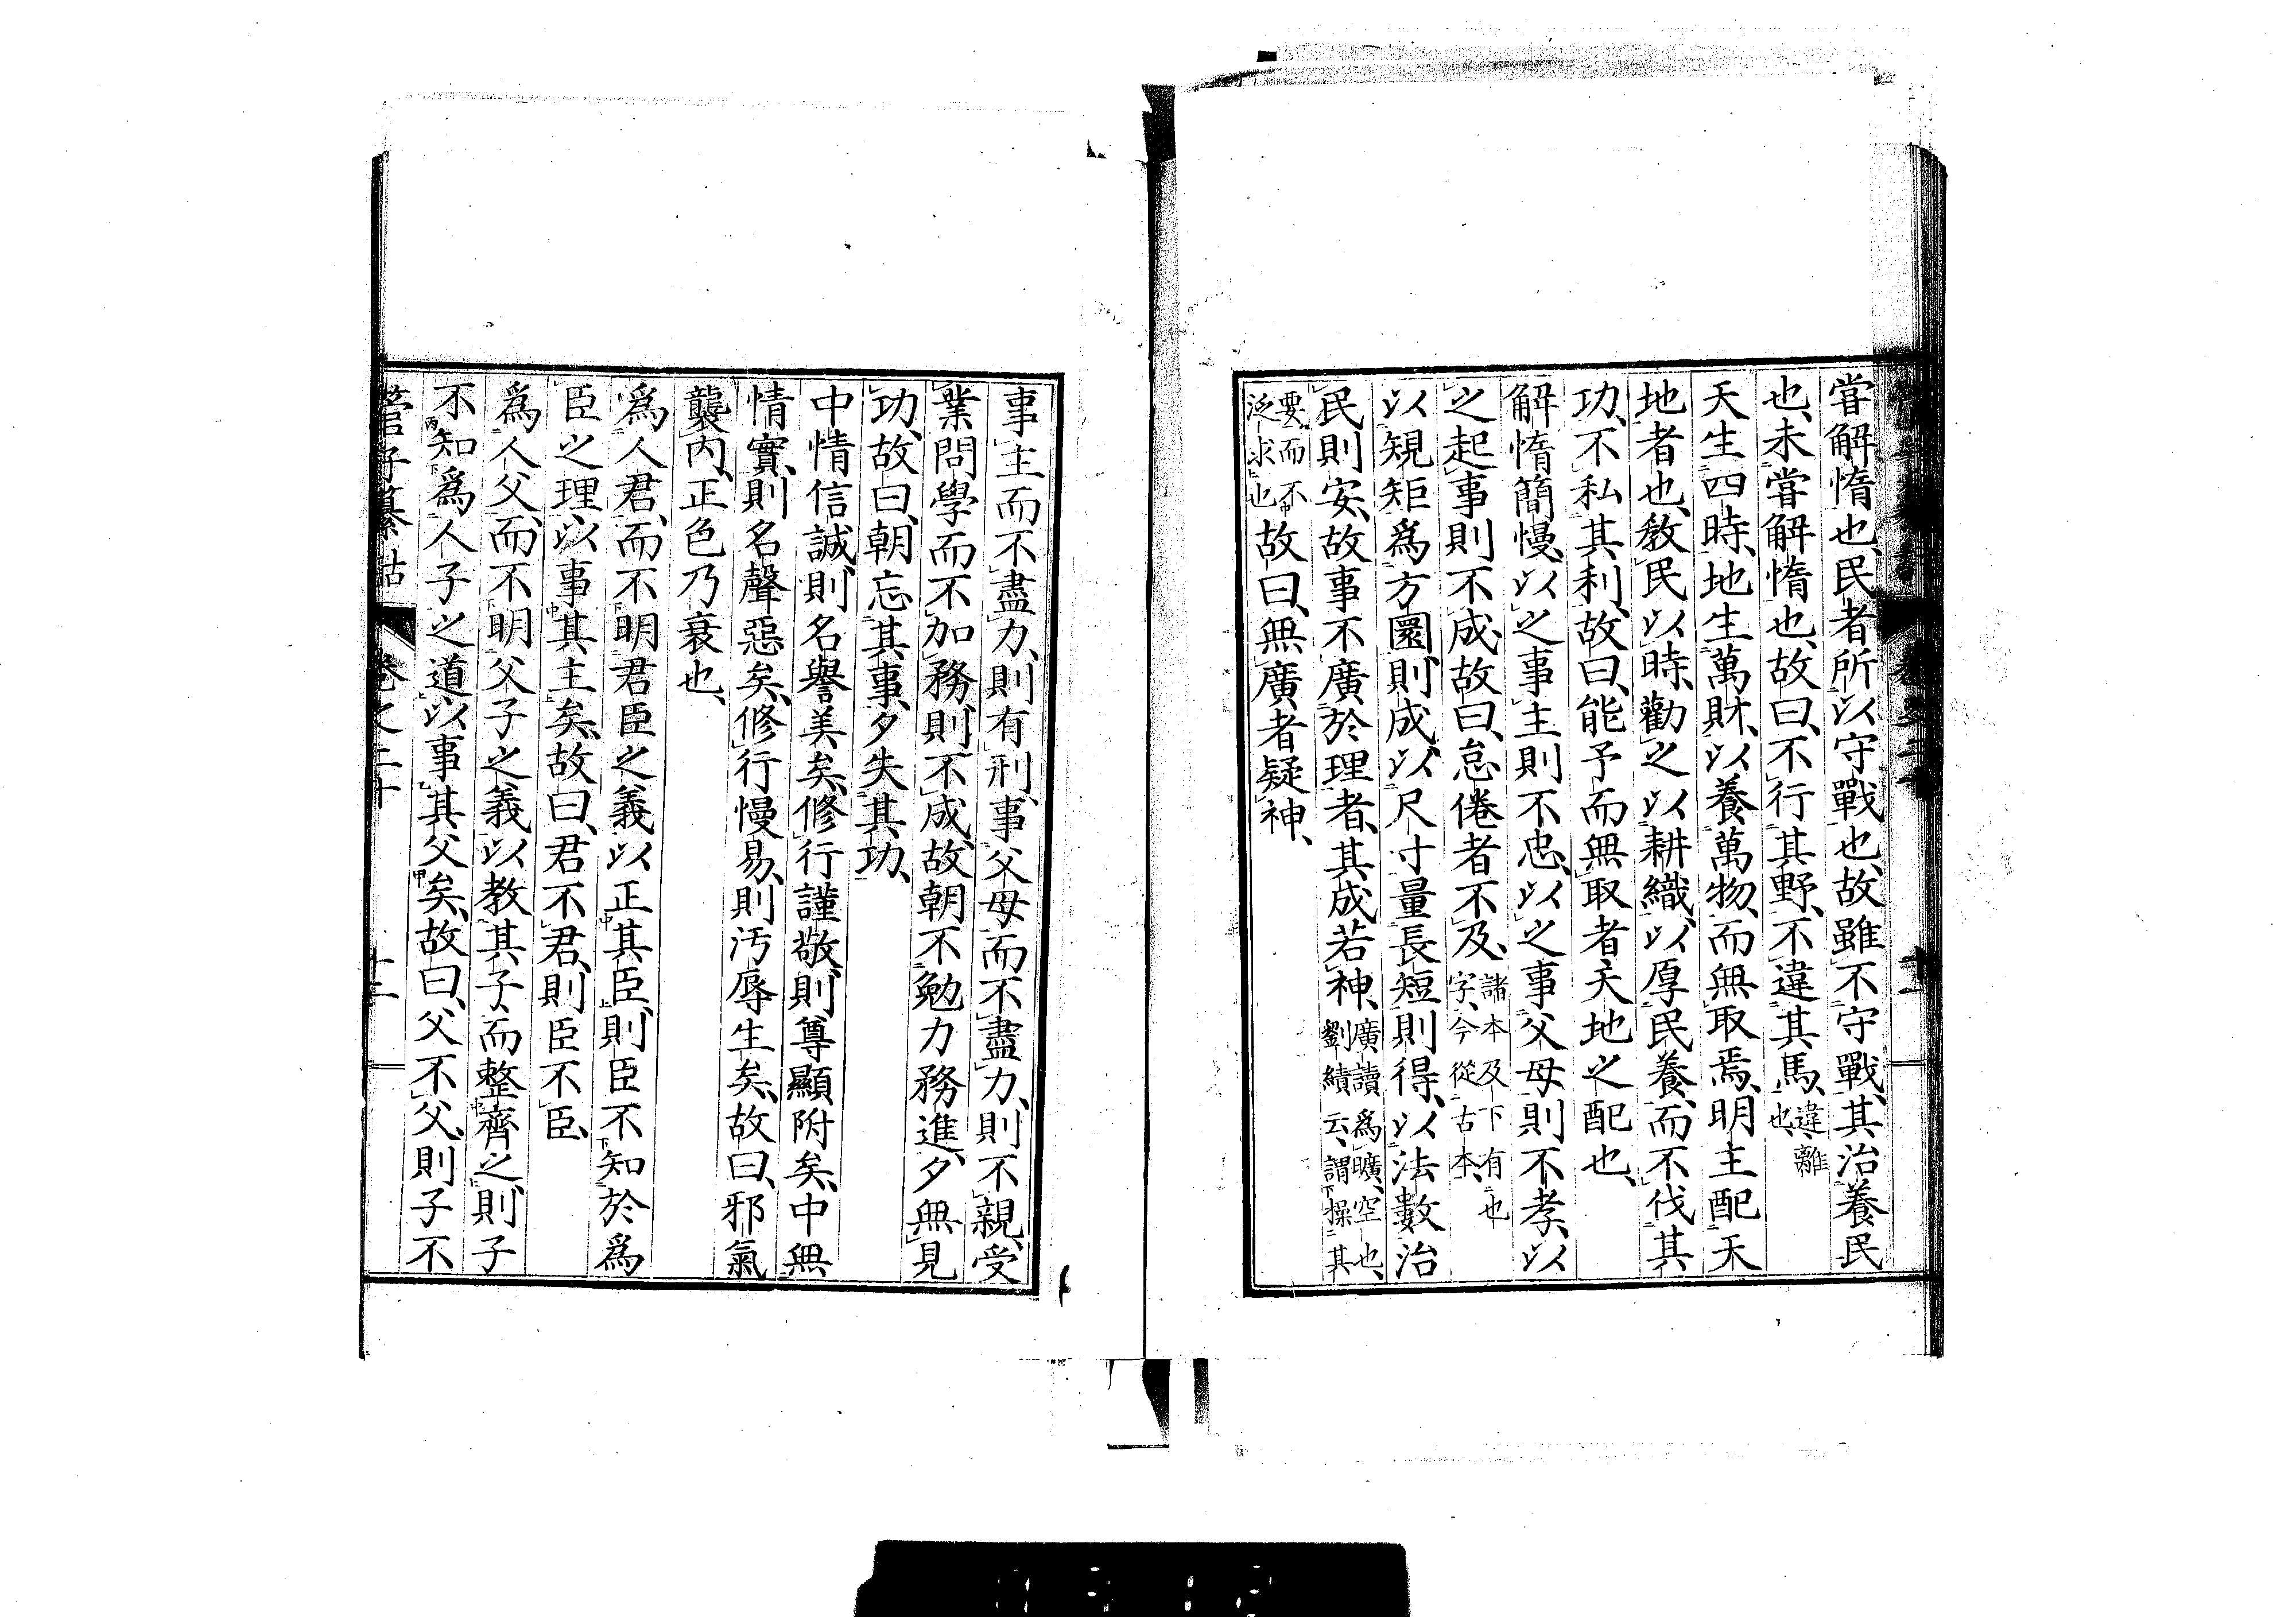 嘗解惰也、民者所以守戰也、故雖不守戰、其治養民
也、未嘗解惰也、故曰、不行其野、不違其馬、違、離也、
天生四時、地生萬財、以養萬物、而無取焉、明主配天
地者也、教民以時、勸之以耕織、以厚民養、而不伐其
功、不私其利、故曰、能予而無取者、天地之配也、
解惰簡慢、以之事主則不忠、以之事父母則不孝、以
之起事則不成、故曰、怠倦者不及、諸本及下有也字、今從古本、
以規矩爲方圜、則成、以尺寸量長短則得、以法數治
民則安、故事不廣於理者、其成若神、廣讀爲曠、空也、劉績云、謂操其
要而不泛求也故曰、無廣者疑神、
事主而不盡力、則有刑、事父母而不盡力、則不親、受
業問學而不加務、則不成、故朝不勉力務進、夕無見
功、故曰、朝忘其事、夕失其功、
中情信誠、則名譽美矣、修行謹敬、則尊顯附矣、中無
情實、則名聲惡矣、修行慢易、則汚辱生矣、故曰、邪氣
襲内、正色乃衰也、
爲人君、而不明君臣之義以正其臣、則臣不知於爲
臣之理以事其主矣、故曰、君不君、則臣不臣、
爲人父、而不明父子之義、以教其子而整齊之、則子
不知爲人子之道以事其父矣、故曰、父不父、則子不
管子纂詁 卷之二十 十二